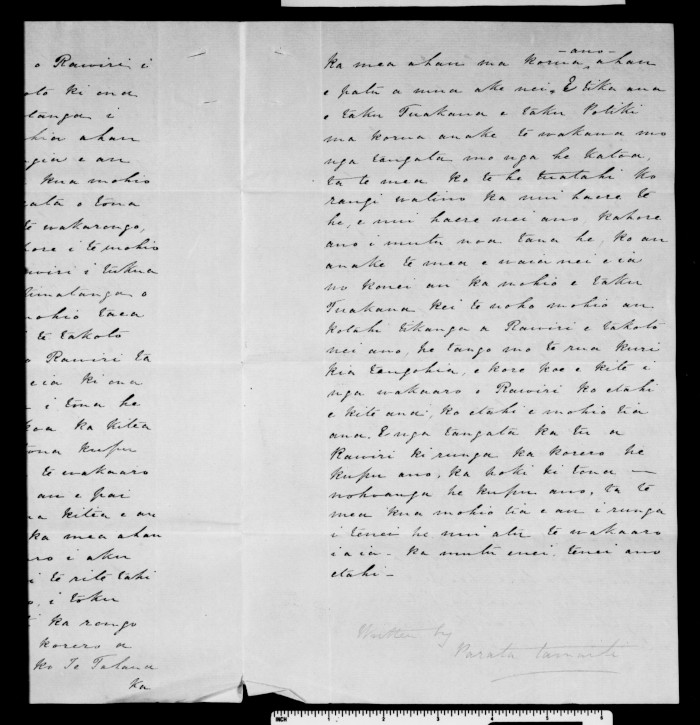 o Rawiri i
oto ki ona
tanga i
ohia ahau
ngia e au
kua mohio
gata o tona
te wakarongo,
hore i te mohio
awiri i tukua
timatanga o
mohio taea
i te takoto
o Rawiri ta
eia ki ona
i tona he
koa ka kitea
tona kupu
te wakaaro
au e pai
na kitea e au
ka mea ahau
ro i aku
i te rite tahi
o, i toku
ka rongo
korero a
ko Te Talana
Ka
-ano-
ka mea ahau ma korua, ahau
e patu a mua ake nei, E tika ana
e taku Tuakana e taku Potiki
ma korua anake te wakawa mo
nga tangata mo nga he katoa,
ta te mea ko te he tuatahi ko
rangi watino ka nui haere te
he, e nui haere nei ano kahore
ano i mutu noa tana he, ko au
anake te mea e waia nei e ia
no konei au ka mohio e taku
Tuakana kei te noho mohio au
kotahi tikanga a Rawiri e takoto
nei ano, he tango mo te rua kuri
kia tangohia, e kore koe e kite i
nga wakaaro o Rawiri ko etahi
e kite ana, ko etahi e mohio tia
ana. E nga tangata ka tu a
Rawiri ki runga ka korero he
kupu ano, ka hoki ki tona —
nohoanga he kupu ano, ta te
mea kua mohio tia e au i runga
i tenei he nui atu te wakaaro
i a ia - ka mutu enei. tenei ano
etahi -
Written by
Parata